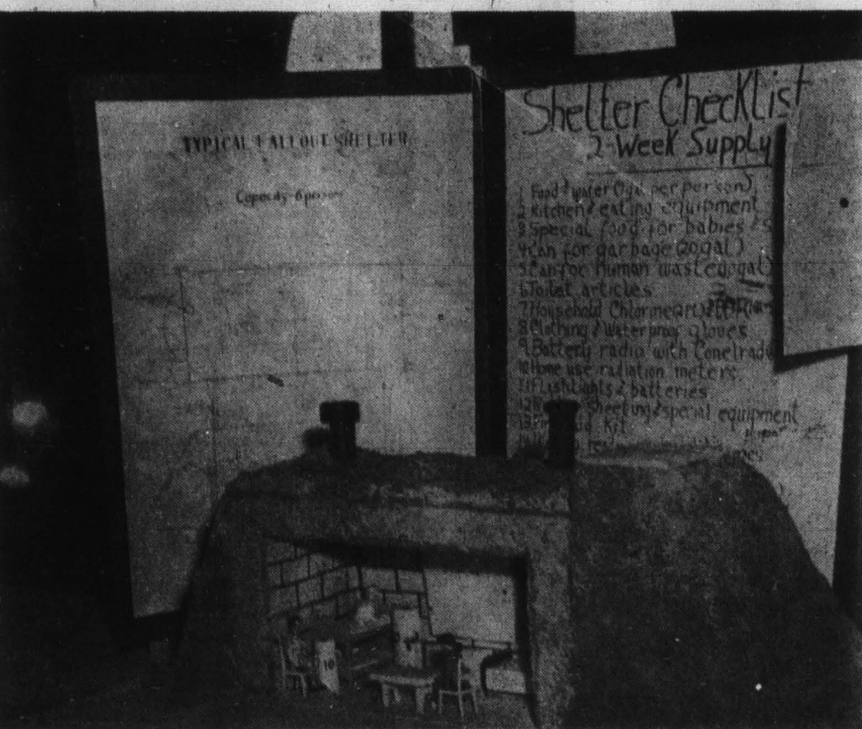 TYPICAL FALLOUT SHELTER
Capacity - 6 persons
Shelter Checklist
2-Week Supply
1 Food & water (7gal per person)
2 Kitchen & eating equipment
3 Special food for babies & S
4 Can for garbage (20gal)
5 Can for human waste (10gal)
6 Toilet articles
7 Household Chlorine
8 Clothing & waterproof gloves
9 Battery radio with Conelrad
10 Home use radiation meters
11 Flashlights & batteries
12 Sheeting & special equipment
13 Kit
14
10